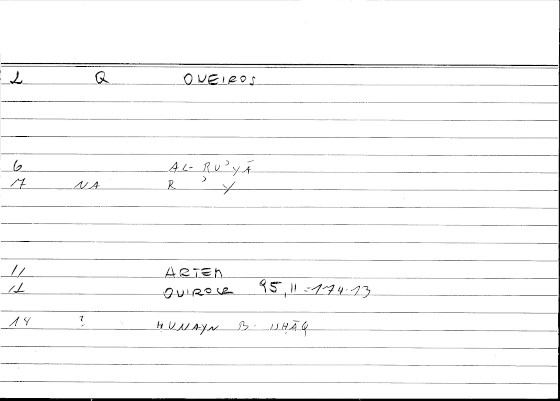 1 Q OVEIROS
6 AL-RU'YĀ
7 NA R ' Y
11 ARTEM
12 OVIROCR 95,11-174.13
14 ? HUNAYN B. ISHĀQ